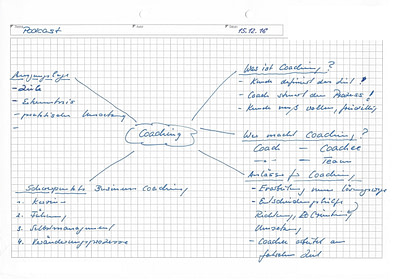 Podcast
15.12.16
Ausgangslage
- Ziele
- Erkenntnis
- praktische Umsetzung
-
Coaching
Was ist Coaching?
- Kunde definiert das Ziel!
- Coach steuert den Prozess!
- Kunde muß wollen, freiwillig
Wer macht Coaching?
Coach - Coachee
-"- - Team
Anlässe für Coaching
- Erarbeitung neuer Lösungswege
- Entscheidungshilfe
Richtung,
Umsetzung
- Coachee arbeitet am
falschen Ziel
Schwerpunkte Business Coaching
1. Karriere
2. Führung
3. Selbstmanagement
4. Veränderungsprozesse